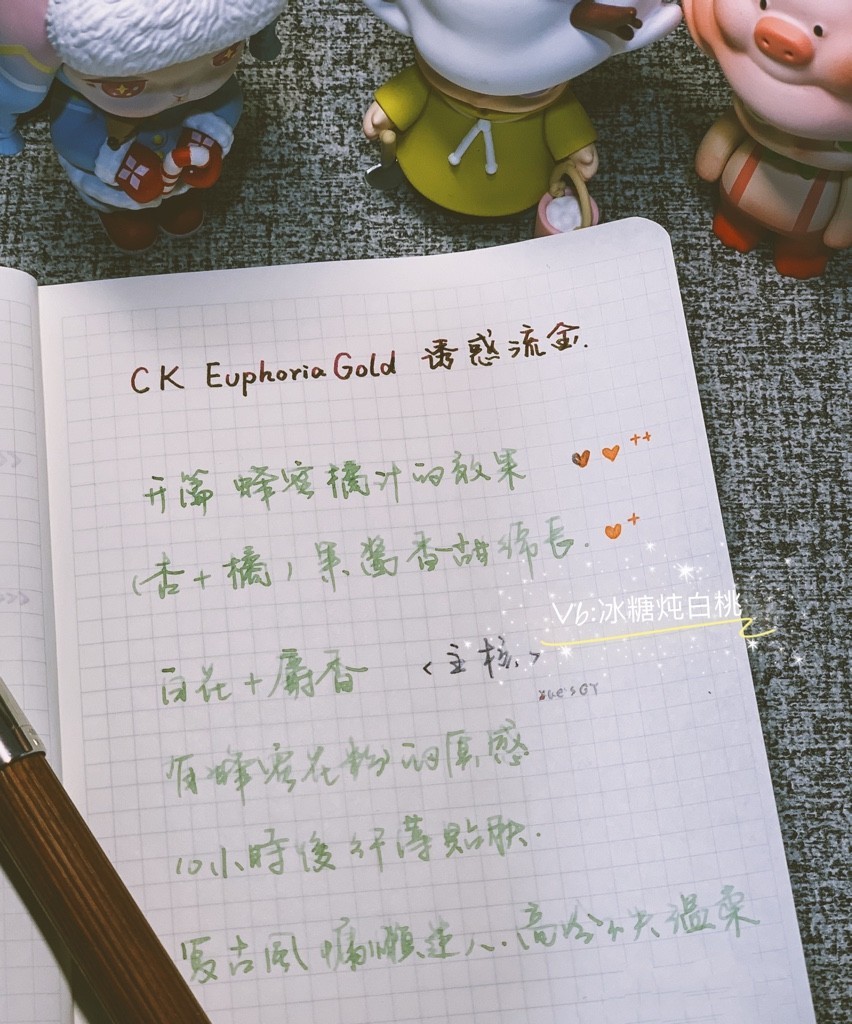 CK Euphoria Gold 诱惑流金.
开篇 蜂蜜橘汁的效果 ++
(杏+橘) 果酱香甜绵長. +
Vb:冰糖炖白桃
百花+麝香 <主核.>
有蜂蜜花粉的厚感
10小時後纤薄貼肤.
复古風慵懒迷人.高冷不失温柔